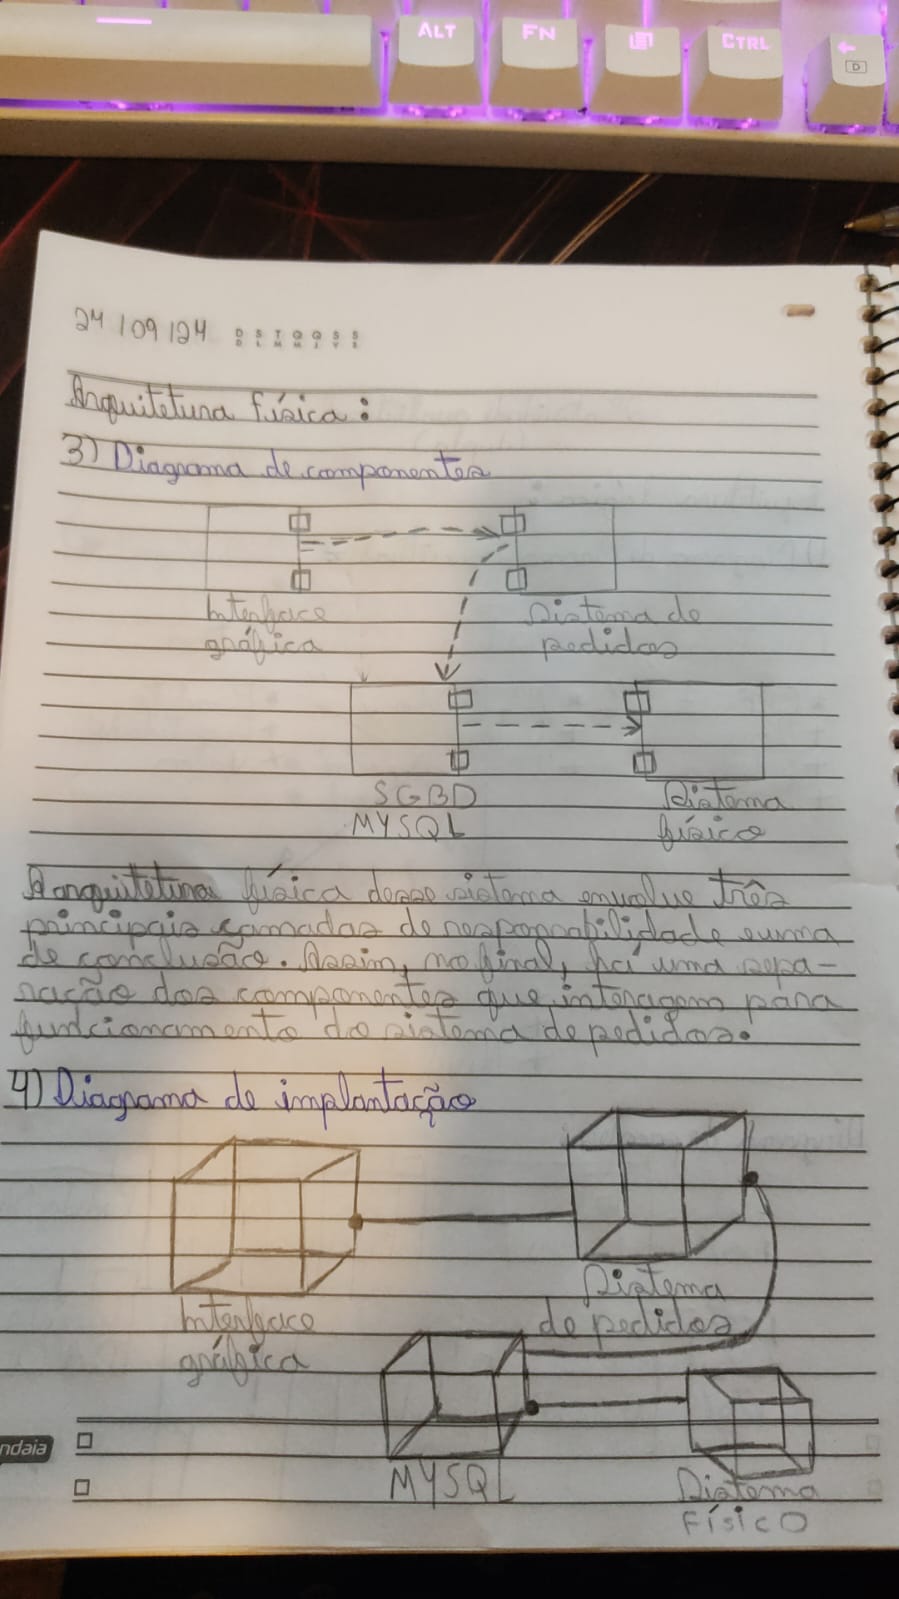 ALT FN CTRL
D
24/09/24 D S T Q Q S S
D L M M J V S
Arquitetura física:
3) Diagrama de componentes
Interface
gráfica
Sistema de
pedidos
SGBD
MYSQL
Sistema
físico
A arquitetura física desse sistema envolve três
principais camadas de responsabilidade e uma
de conclusão. Assim, no final, há uma sepa-
ração dos componentes que interagem para
funcionamento do sistema de pedidos.
4) Diagrama de implantação
Interface
gráfica
Sistema
de pedidos
MYSQL
Sistema
Físico
ndaia